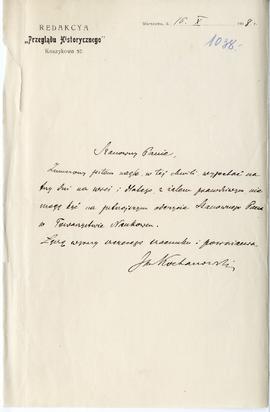 REDAKCYA
"Przeglądu Historycznego"
Koszykowa 10.
Warszawa, d. 16. X 1908 r.
1038.
Szanowny Panie,
Zmuszony jestem nagle, w tej chwili, wyjechać na
trzy dni na wieś i dlatego z żalem prawdziwym nie
mogę być na jutrzejszym odczycie Szanownego Pana
w Towarzystwie Naukowem.
Łączę wyrazy szczerego szacunku i poważania.
Jan Kochanowski